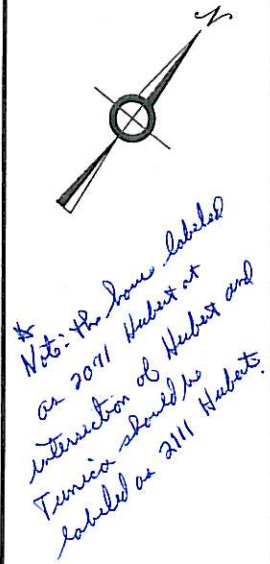 N
* Note: the house labeled
as 2091 Hubert at
intersection of Hubert and
Tunica should be
labeled as 2111 Hubert.